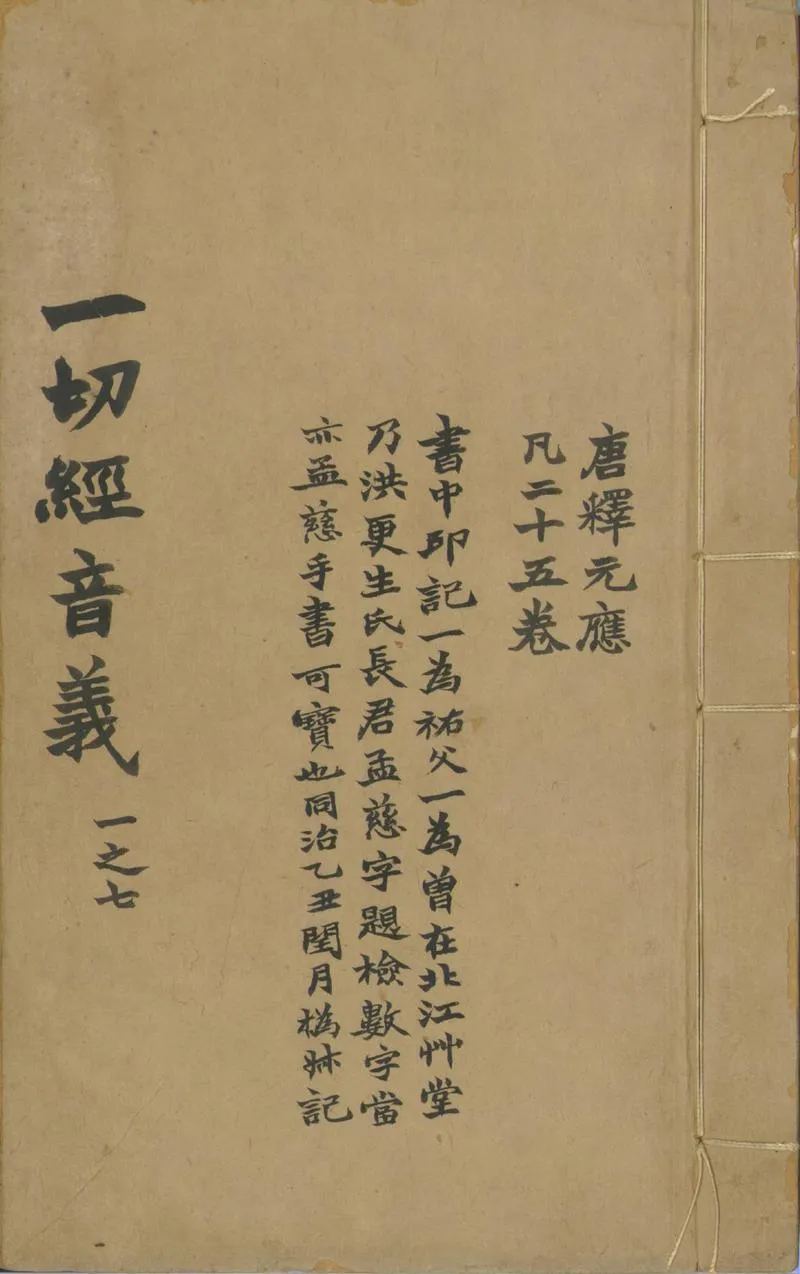 唐釋元應
凡二十五卷
書中印記一為祐父一為曾在北江艸堂
乃洪更生氏長君孟慈字題檢數字當
亦孟慈手書可寶也同治乙丑閏月檆
一切經音義
一之七